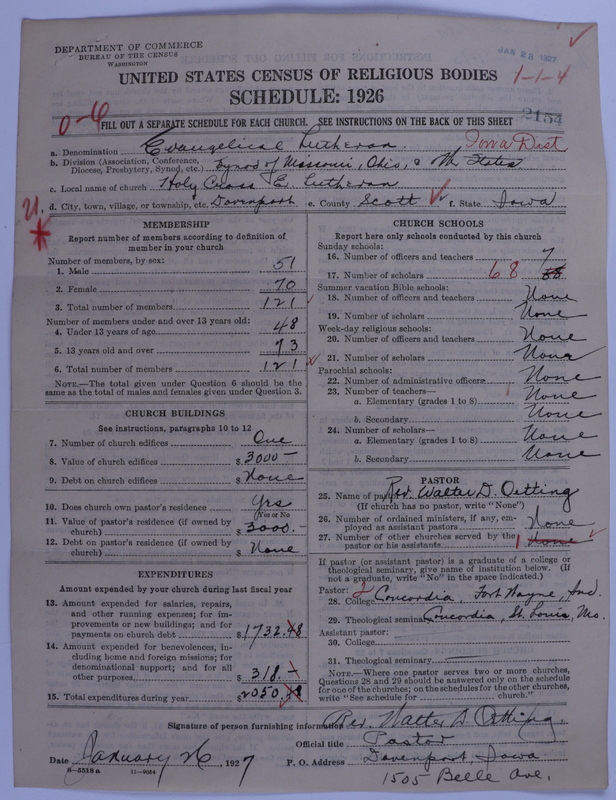 DEPARTMENT OF COMMERCE
BUREAU OF THE CENSUS
WASHINGTON
JAN 28 1927
UNITED STATES CENSUS OF RELIGIOUS BODIES
1-1-4
SCHEDULE: 1926
2154
0-6
FILL OUT A SEPARATE SCHEDULE FOR EACH CHURCH. SEE INSTRUCTIONS ON THE BACK OF THIS SHEET
a. Denomination Evangelical Lutheran. Iowa Dist
b. Division (Association, Conference, Diocese, Presbytery, Synod, etc.) Synod of Missouri, Ohio, & Oth. States
c. Local name of church Holy Cross Ev. Lutheran
d. City, town, village, or township, etc. Davenport e. County Scott f. State Iowa
MEMBERSHIP
Report number of members according to definition of
member in your church
Number of members, by sex:
1. Male 51
2. Female 70
3. Total number of members 121
Number of members under and over 13 years old:
4. Under 13 years of age 48
5. 13 years old and over 73
6. Total number of members 121
NOTE.—The total given under Question 6 should be
same as the total of males and females given under Question 3.
CHURCH BUILDINGS
See instructions, paragraphs 10 to 12
7. Number of church edifices One
8. Value of church edifices $ 3000 —
9. Debt on church edifices $ None
10. Does church own pastor's residence Yes
(Yes or No)
11. Value of pastor's residence (if owned by
church) $ 3000.—
12. Debt on pastor's residence (if owned by
church) $ None
EXPENDITURES
Amount expended by your church during last fiscal year
13. Amount expended for salaries, repairs,
and other running expenses; for im-
provements or new buildings; and for
payments on church debt $ 1732.48
14. Amount expended for benevolences, in-
cluding home and foreign missions; for
denominational support; and for all
other purposes $ 318.—
15. Total expenditures during year $ 2050.48
CHURCH SCHOOLS
Report here only schools conducted by this church
Sunday schools:
16. Number of officers and teachers 7
17. Number of scholars 68
Summer vacation Bible schools:
18. Number of officers and teachers None
19. Number of scholars None
Week-day religious schools:
20. Number of officers and teachers None
21. Number of scholars None
Parochial schools:
22. Number of administrative officers None
23. Number of teachers—
a. Elementary (grades 1 to 8) None
b. Secondary None
24. Number of scholars—
a. Elementary (grades 1 to 8) None
b. Secondary None
PASTOR
25. Name of pastor Rev. Walter D. Oetting
(If church has no pastor, write "None")
26. Number of ordained ministers, if any, em-
ployed as assistant pastors None
27. Number of other churches served by the
pastor or his assistants 1 None
If pastor (or assistant pastor) is a graduate of a college or
theological seminary, give name of institution below. (If
not a graduate, write "No" in the space indicated.)
Pastor: 2
28. College Concordia, Fort Wayne, Ind.
29. Theological seminary Concordia, St. Louis, Mo.
Assistant pastor:
30. College
31. Theological seminary
NOTE.—Where one pastor serves two or more churches,
Questions 28 and 29 should be answered only on the schedule
for one of the churches; on the schedules for the other churches,
write "See schedule for church."
Signature of person furnishing information Rev. Walter D. Oetting.
Official title Pastor
Date January 26, 1927 P. O. Address Davenport, Iowa
8—5518 a 11—9084 1505 Belle Ave.